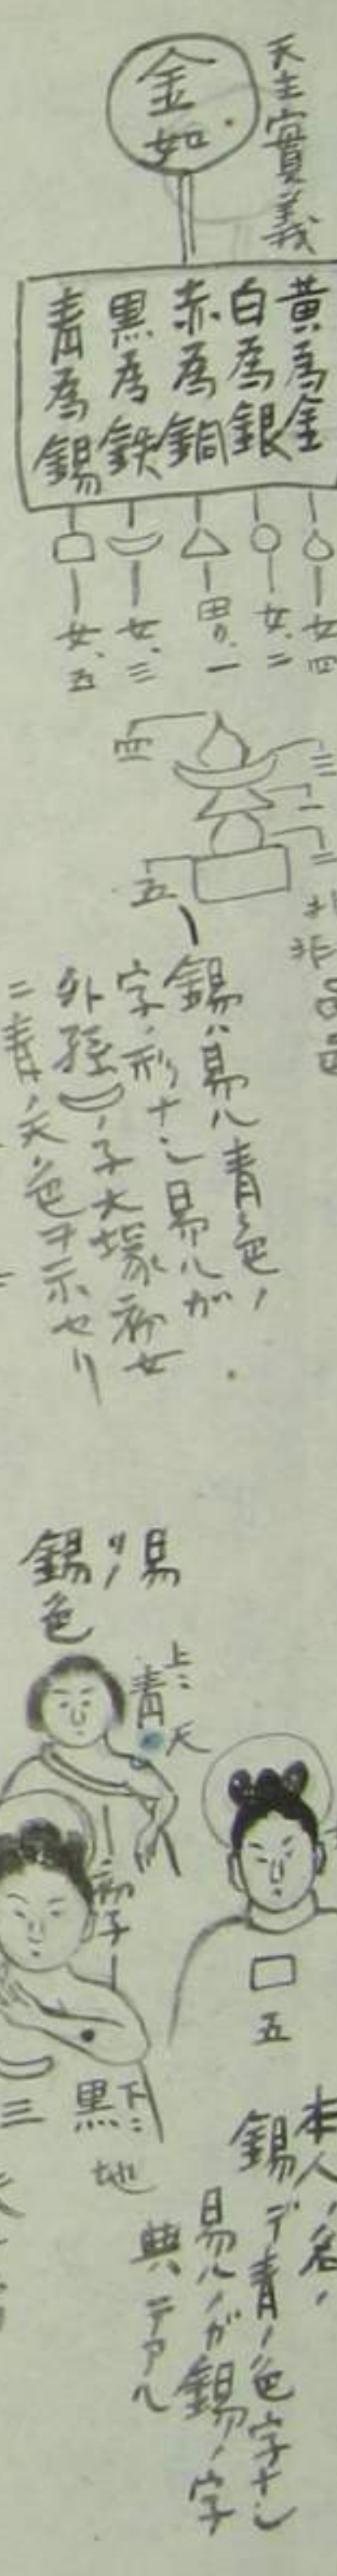 天主實義
金如
黃為金
白為銀
赤為銅
黒為鉄
青為錫
女四
女、二
男、一
女、三
女、五
四
三
一
二
五
非品
錫ハ易ル青色ノ
字ノ形ナシ易ルガ
外孫ノ子大塚初女
ニ青ノ天ノ色ヲ示セリ
易
錫色
上ニ
青天
初子
五
三
下ニ
黒地
本人ノ名ノ
錫デ青ノ色字ナシ
易ルノガ錫ノ字
典デアル